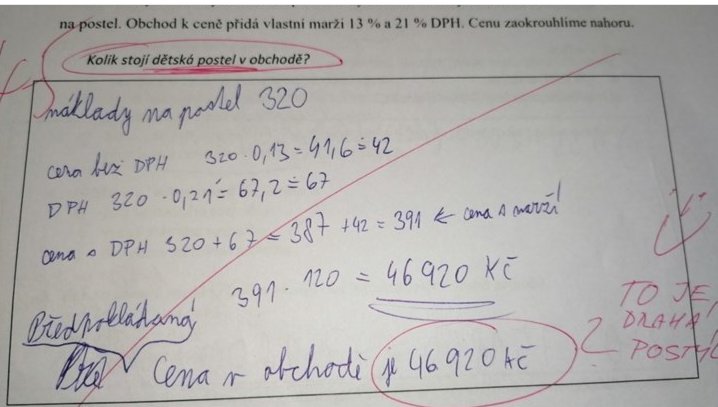 na postel. Obchod k ceně přidá vlastní marži 13 % a 21 % DPH. Cenu zaokrouhlíme nahoru.
Kolik stojí dětská postel v obchodě?
náklady na postel 320
cena bez DPH 320 · 0,13 = 41,6 ≐ 42
DPH 320 · 0,21 = 67,2 ≐ 67
cena s DPH 320 + 67 = 387 + 42 = 391 ← cena s marží!
391 · 120 = 46920 Kč
Předpokládaná
Cena v obchodě je 46920 Kč
?
TO JE
DRAHÁ